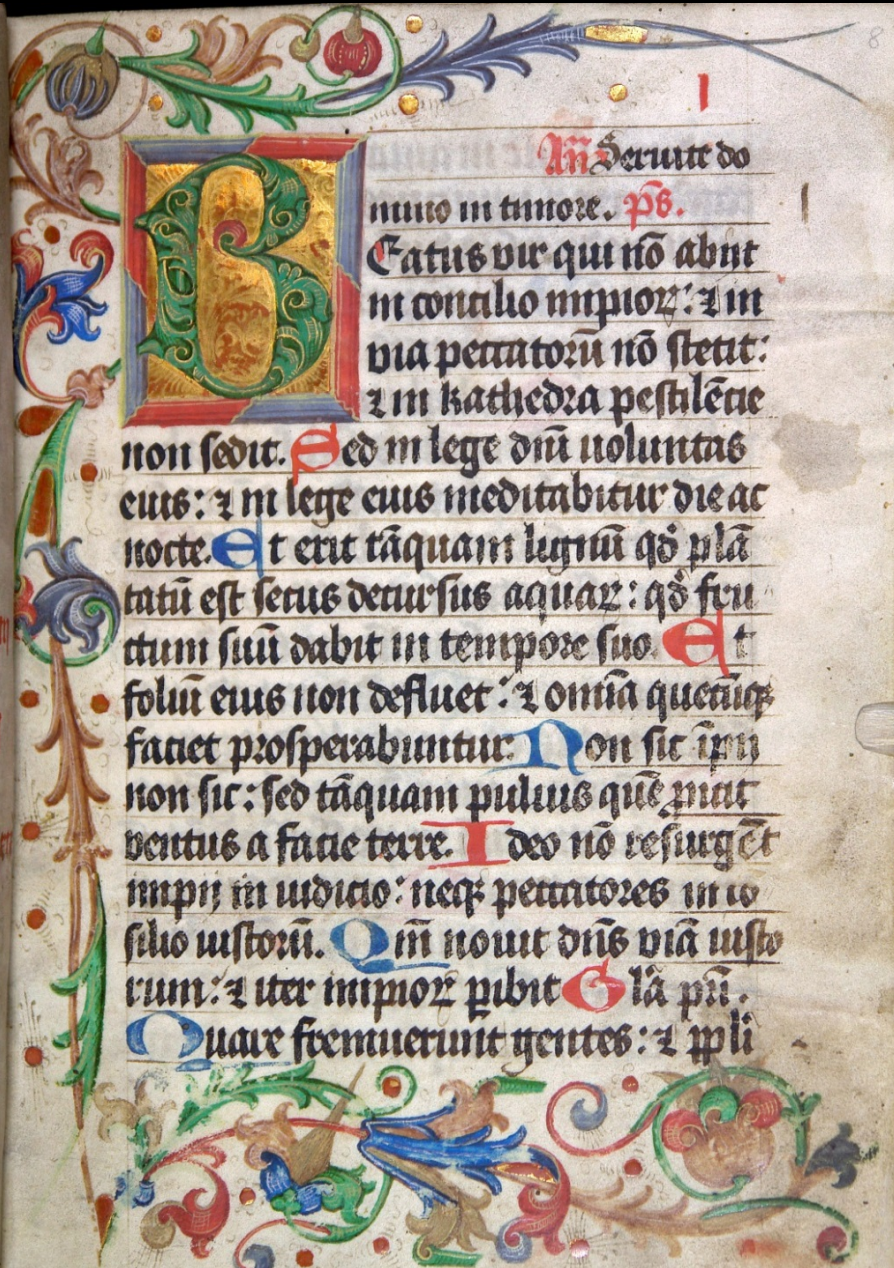 8
I
Añ Seruite do
mino in timore. p̄s.
BEatus vir qui nō abijt
in consilio impioꝝ: ⁊ in
via peccatorū nō stetit:
⁊ in kathedra pestilēcie
non sedit. Sed in lege dn̄i uoluntas
eius: ⁊ in lege eius meditabitur die ac
nocte. Et erit tāquam lignū qd̄ plā
tatū est secus decursus aquaꝝ: qd̄ fru
ctum suū dabit in tempore suo. Et
foliū eius non defluet: ⁊ omīa quecūqꝫ
faciet prosperabuntur: Non sic īpij
non sic: sed tāquam puluis quē ꝓicit
ventus a facie terre. Ideo nō resurgēt
impij in iudicio: neqꝫ peccatores in cō
silio iustorū. Qm̄ nouit dn̄s viā iusto
rum: ⁊ iter impioꝝ ꝑibit Gl̄a pr̄i.
Quare fremuerunt gentes: ⁊ pp̄li